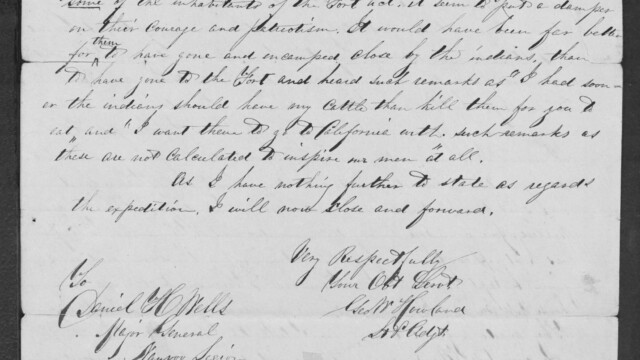 some of the inhabitants of the Fort act. it seem to put a damper
on their courage and patriotism. It would have been far better
for them to have gone and encamped close by the indians, than
to have gone to the Fort and heard such remarks as "I had soon-
er the indians should have my Cattle than kill them for you to
eat, and "I want them to go to California with. such remarks as
these are not calculated to inspire our men "at all.
As I have nothing further to state as regards
the expedition. I will now close and forward.
Very Respectfully
Your Obt Servt
Geo W Howland
Adjt.
To
Daniel H Wells
Major General
Nauvoo Legion